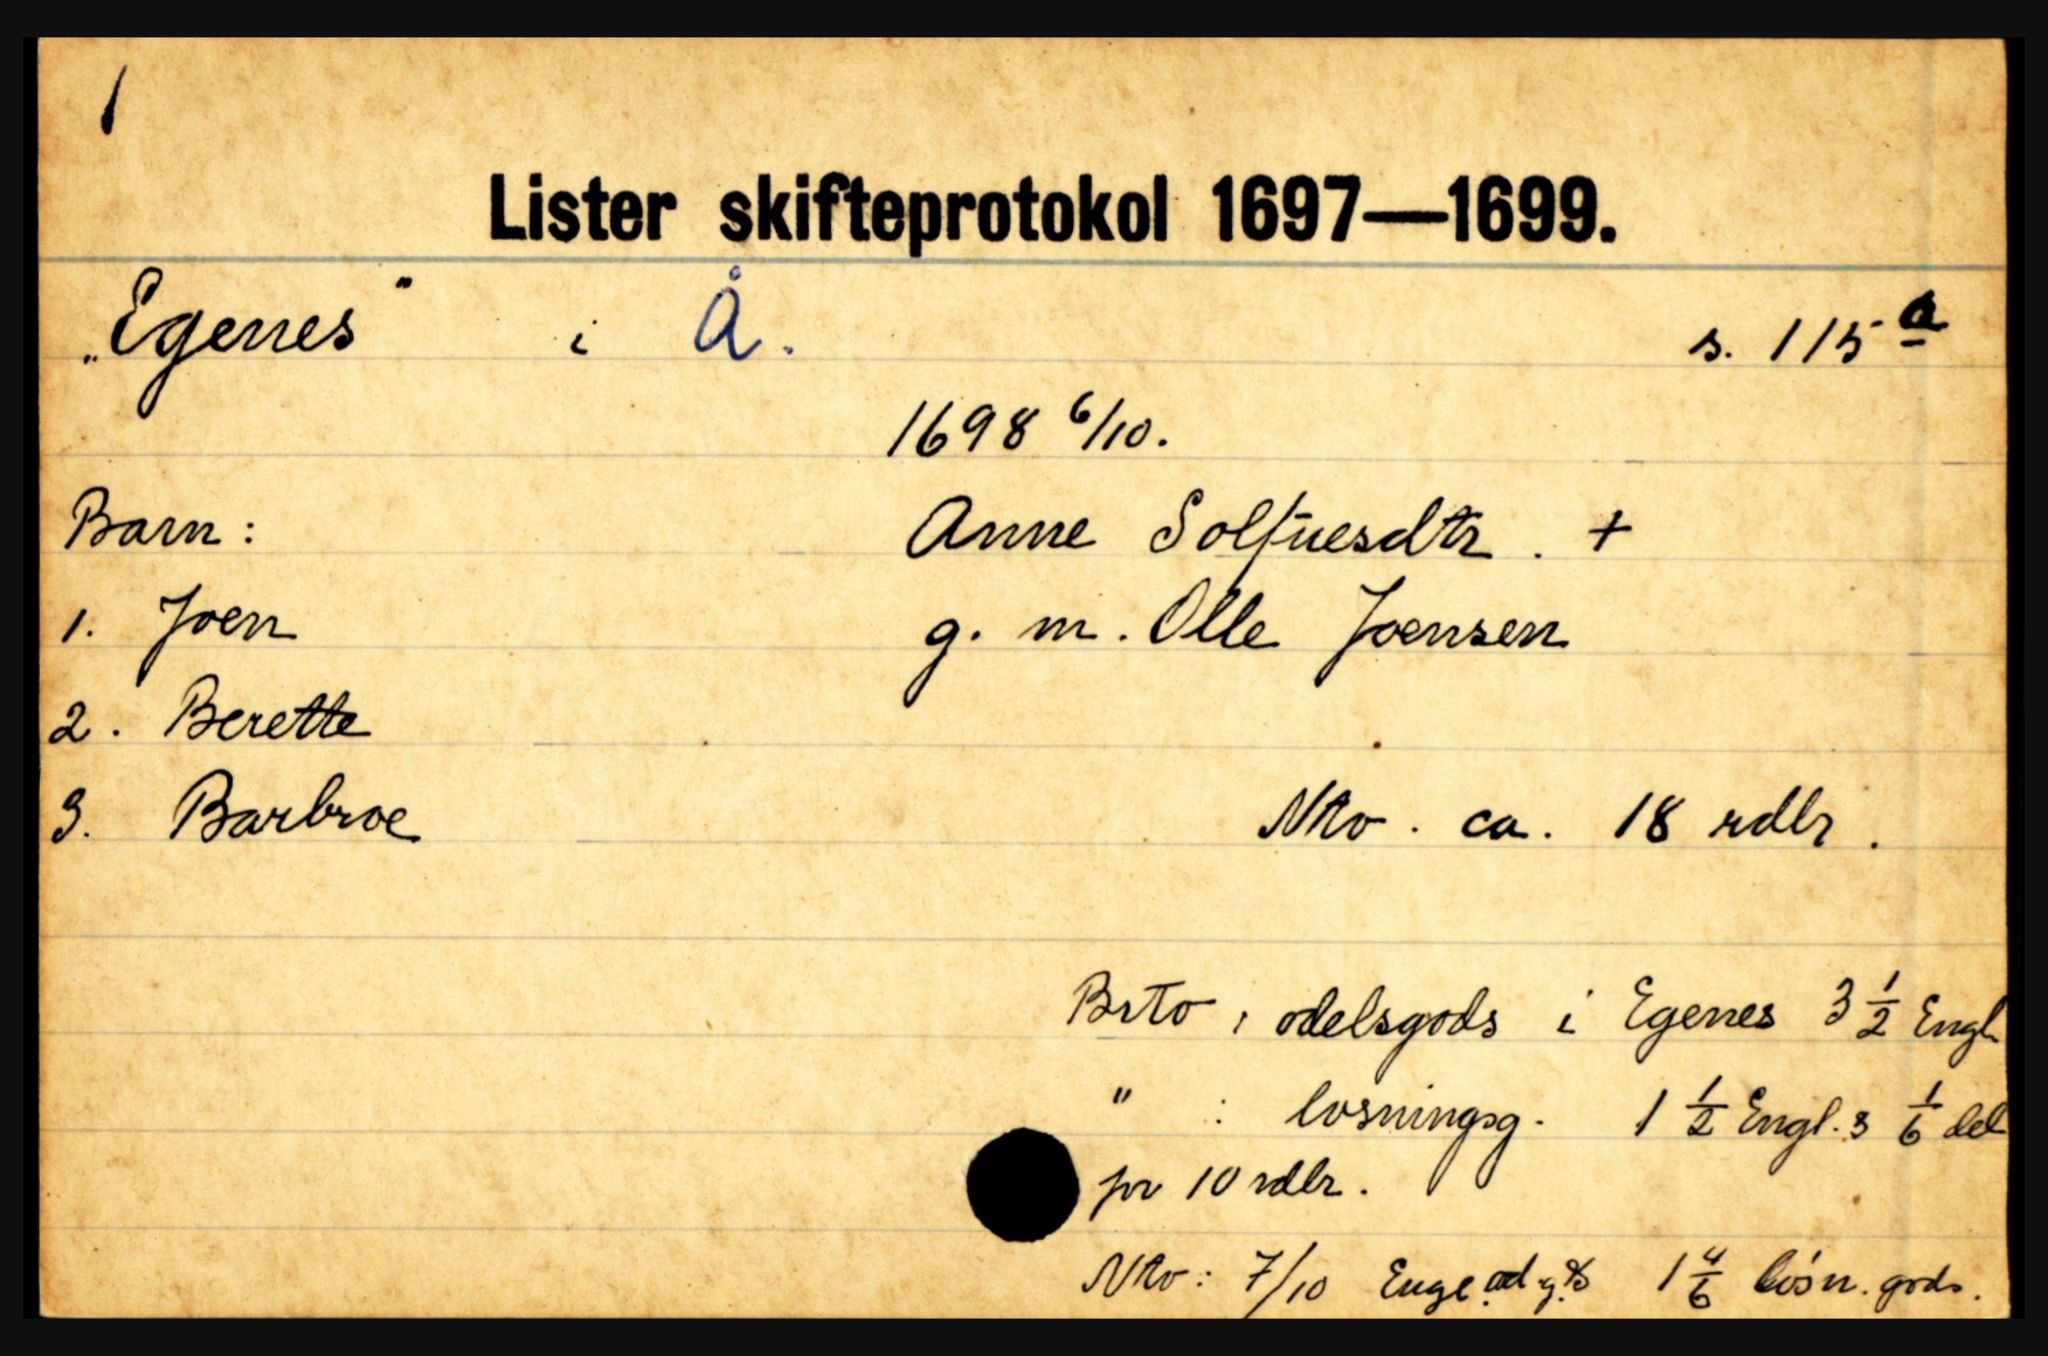 1
Lister skifteprotokol 1697—1699.
„Egenes" i Å. s. 115 a
1698 6/10.
Barn: Anne Solfuesdtr. +
1. Joen g. m. Olle Joensen
2. Berette
3. Barbroe Nto. ca. 18 rdlr.
Brto, odelsgods i Egenes 3 1/2 Engl
" : løsningsg. 1 1/2 Engl. & 1/6 del
for 10 rdlr.
Nto: 7/10 Enge od.g. & 1 4/6 løsn. gods.